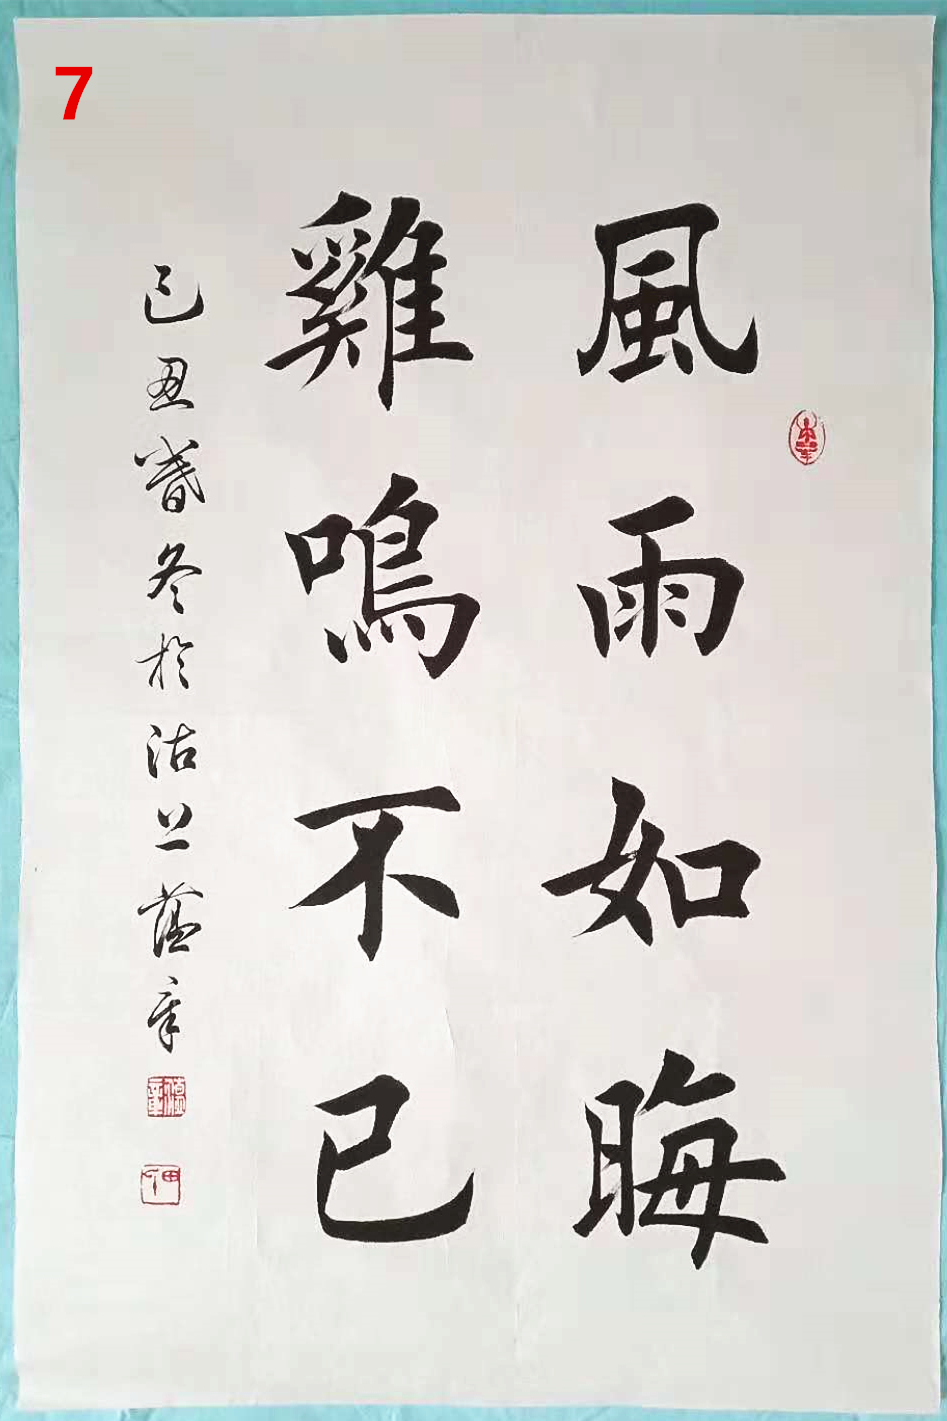 7
風雨如晦
雞鳴不已
己丑暮冬於沽上蕴章